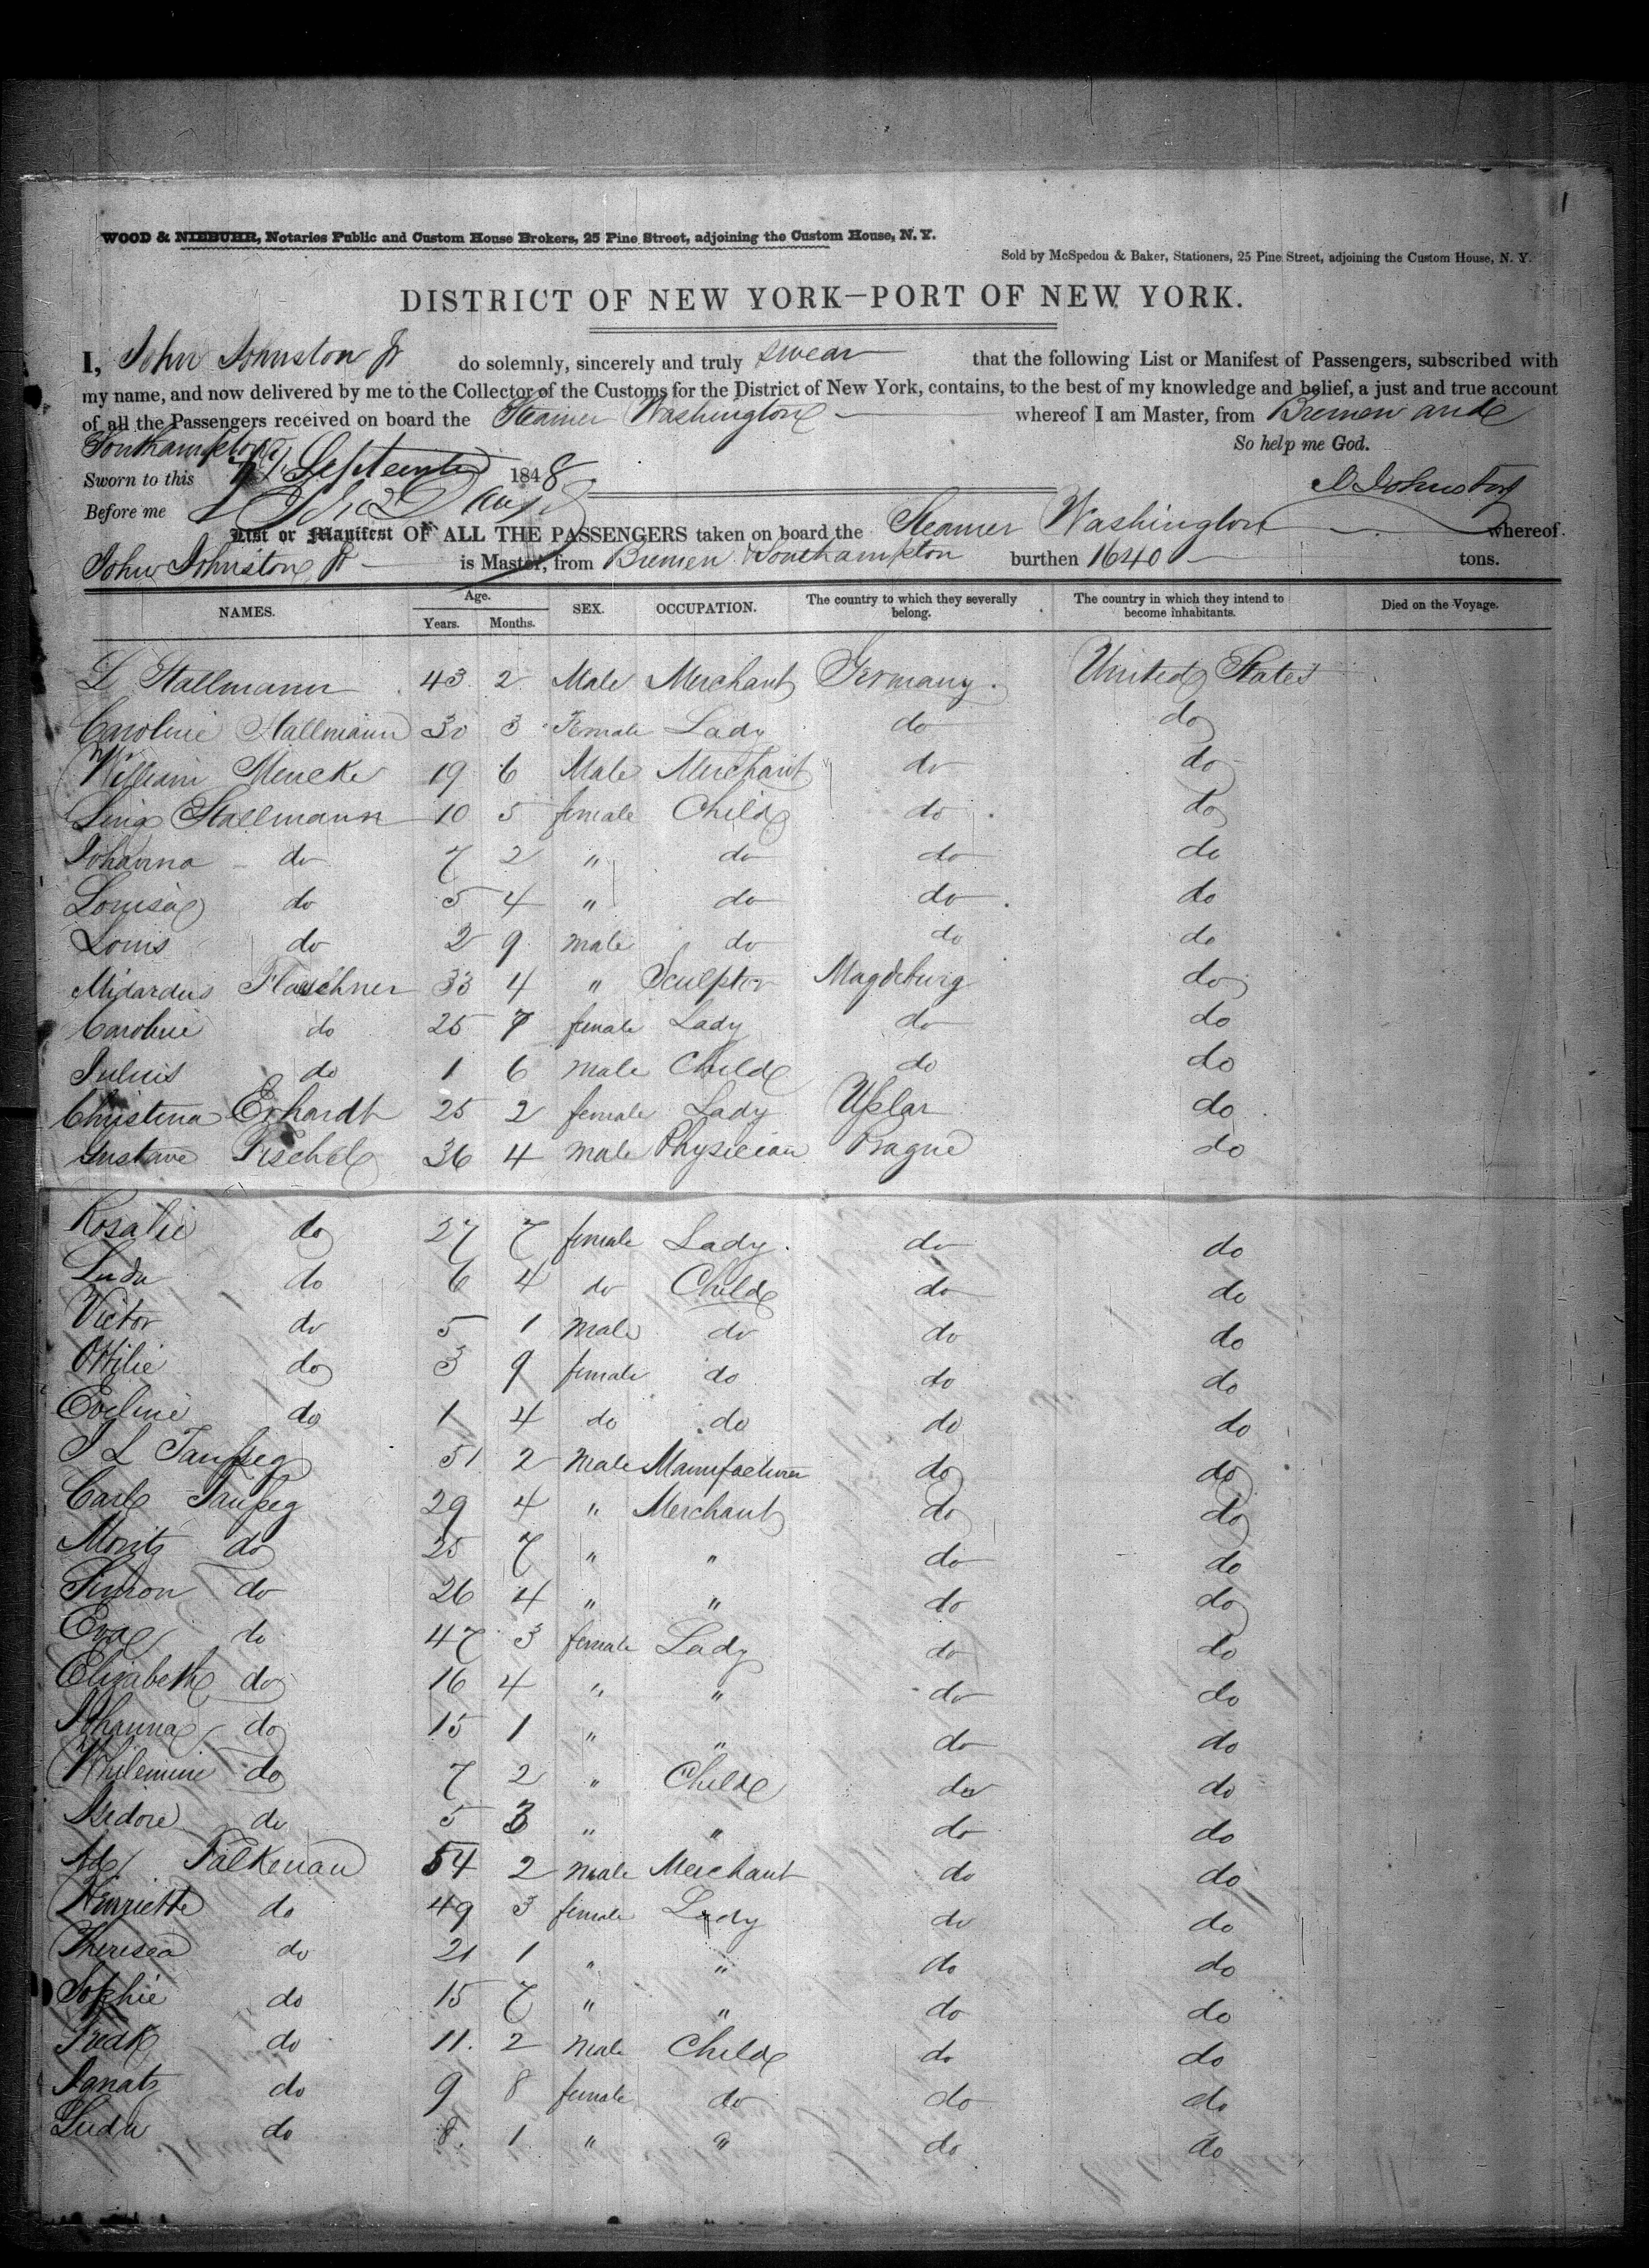 1
WOOD & NIEBUHR, Notaries Public and Custom House Brokers, 25 Pine Street, adjoining the Custom House, N. Y.
Sold by McSpedon & Baker, Stationers, 25 Pine Street, adjoining the Custom House, N. Y.
DISTRICT OF NEW YORK—PORT OF NEW YORK.
I, John Johnston Jr do solemnly, sincerely and truly swear that the following List or Manifest of Passengers, subscribed with
my name, and now delivered by me to the Collector of the Customs for the District of New York, contains, to the best of my knowledge and belief, a just and true account
of all the Passengers received on board the Steamer Washington whereof I am Master, from Bremen and
Southampton So help me God.
Sworn to this September 1848 J Johnston
Before me
List or Manifest OF ALL THE PASSENGERS taken on board the Steamer Washington whereof
John Johnston Jr is Master, from Bremen Southampton burthen 1640 tons.
NAMES. Age. Years. Months. SEX. OCCUPATION. The country to which they severally belong. The country in which they intend to become inhabitants. Died on the Voyage.
L Stallmann 43 2 Male Merchant Germany United States
Caroline Stallmann 30 3 Female Lady do do
William Mencke 19 6 Male Merchant do do
Lina Stallmann 10 5 female Child do do
Johanna do 7 2 " do do do
Louisa do 5 4 " do do do
Louis do 2 9 male do do do
Midardus Flaschner 33 4 " Sculptor Magdeburg do
Caroline do 25 7 female Lady do do
Julius do 1 6 male Child do do
Christina Erhardt 25 2 female Lady Uslar do
Gustave Fischel 36 4 male Physician Prague do
Rosalie do 27 7 female Lady do do
Luda do 6 4 do Child do do
Victor do 5 1 male do do do
Ottilie do 3 9 female do do do
Eveline do 1 4 do do do do
J L Taussig 51 2 male Manufacturer do do
Carl Taussig 29 4 " Merchant do do
Moritz do 25 7 " " do do
Simon do 26 4 " " do do
Eva do 47 3 female Lady do do
Elizabeth do 16 4 " " do do
Johanna do 15 1 " " do do
Whilemine do 7 2 " Child do do
Isedore do 5 3 " " do do
Ad Falkenau 54 2 male Merchant do do
Henriette do 49 3 female Lady do do
Theresea do 21 1 " " do do
Sophie do 15 7 " " do do
Fredk do 11 2 male Child do do
Ignatz do 9 8 female do do do
Luda do 8 1 " " do do